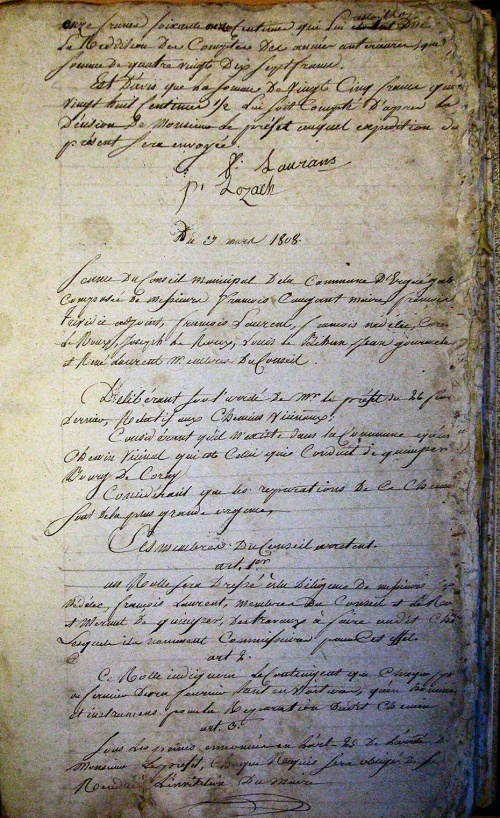 onze francs soixante centimes qui lui
la Reddition Des Comptes Des années antérieures, que
somme de quatre vingt Dix Sept francs.
Est D'avis que la somme De Vingt Cinq francs quatre
Vingt huit Centimes 1/2 lui soit Compté D'après la
Décision De Monsieur Le préfet auquel expédition du
présent sera envoyée.
f. Laurans
p. Lozach
Du 27 mars 1808.
Séance Du Conseil Municipal De la Commune D'Ergué gab
Composée de messieurs françois Caugant maire, françois
adjoint, françois Laurent, françois nédélec, Corentin
Le Bourg, Joseph Le Roux, Louis Le Bihan, Jean gourmelen
et René Laurent Membres Du Conseil.
Délibérant sur l'arrêté de Mr le préfet du 26
Dernier, Relatif aux Chemins Vicinaux;
Considérant qu'il n'existe dans la Commune
Chemin Vicinal qui est Celui qui Conduit de quimper
Bourg De Coray
Considérant que les réparations De Ce Chemin
sont de la plus grande urgence,
Les membres Du Conseil arrêtent.
art. 1er
un Rolle sera Dressé à la Diligence De messieurs
Nédélec, françois Laurent, membres Du Conseil et Le
et De quimper, Des travaux à faire audit
Lesquels ils nomment Commissaires pour Cet effet
art 2.
Ce Rolle indiquera le Contingent que Chaque
ou fermier Devra fournir tant en Voitures, qu'en hommes
et instrumens pour la Réparation Dudit Chemin
art. 3.
Sous les peines énoncées en l'art. 25 De l'arrêté de
Monsieur Le préfet, Chaque Requis sera obligé de se
Rendre à L'invitation Du Maire